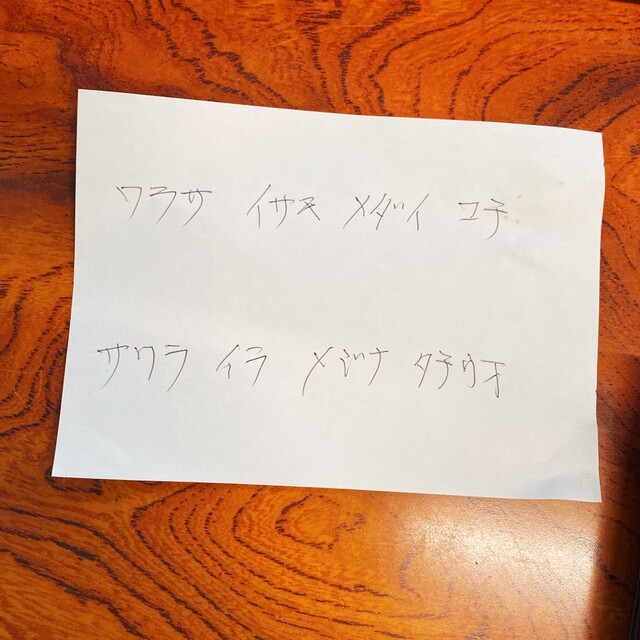 ワラサ イサキ メダイ コチ
サワラ イラ メジナ タチウオ